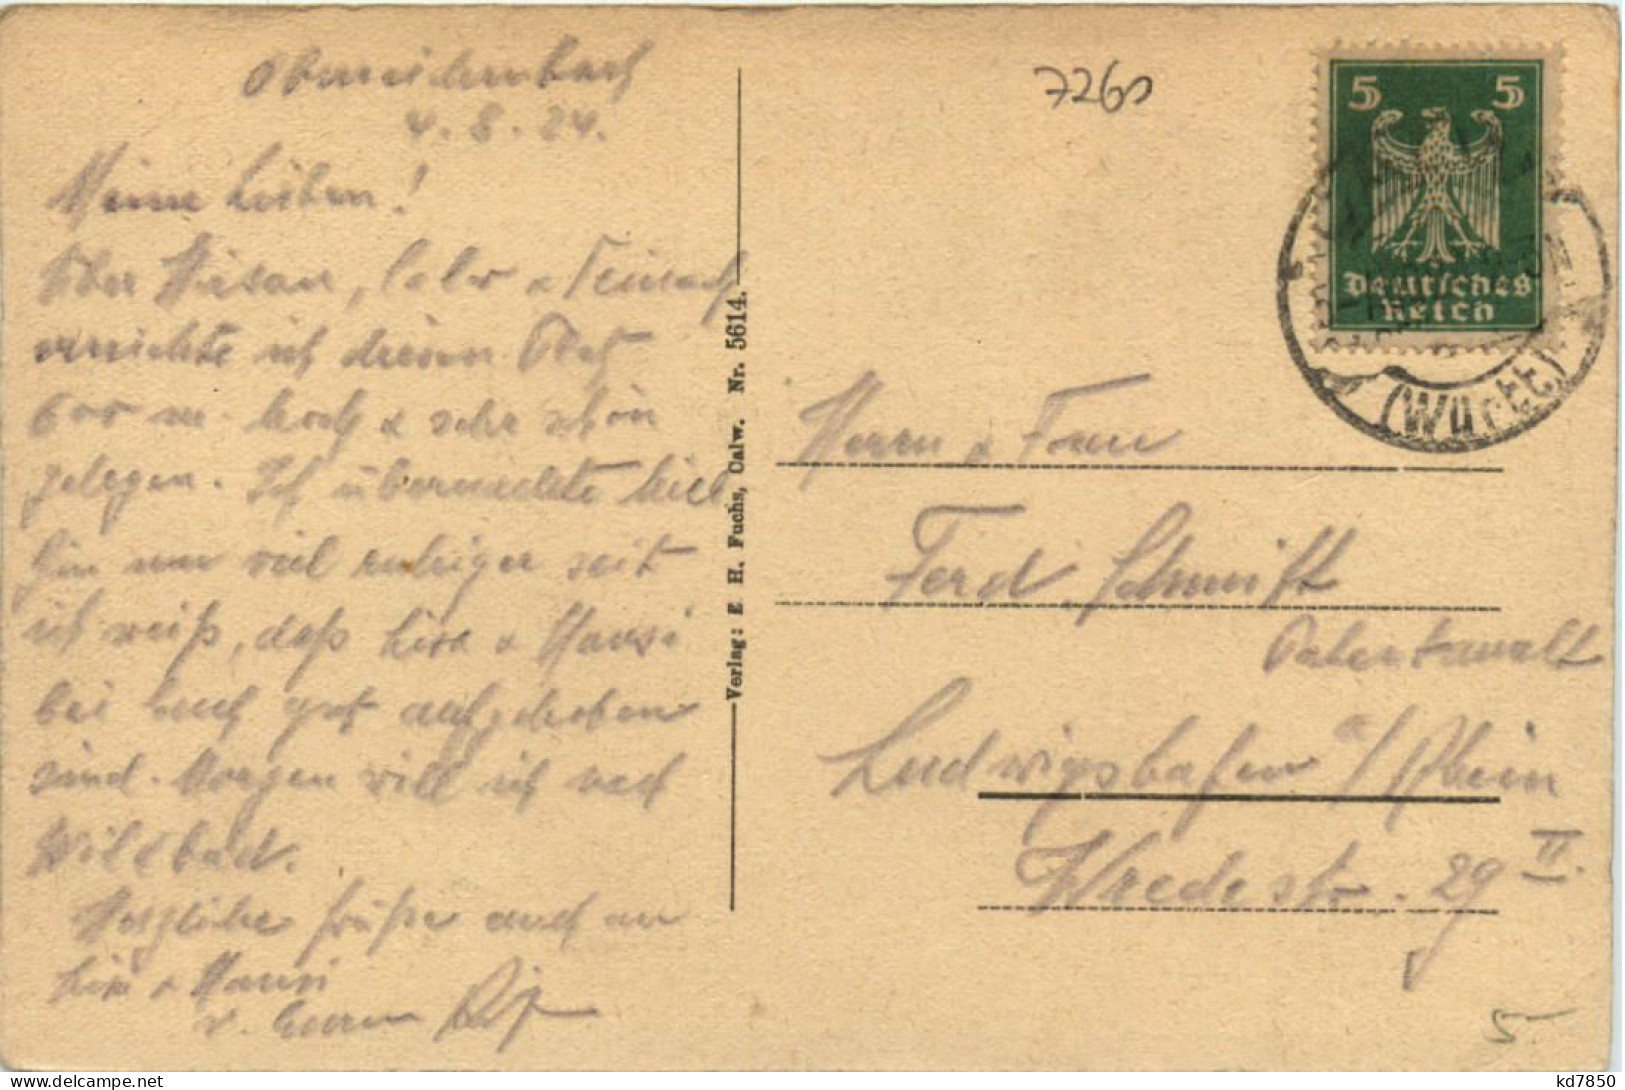 Oberreichenbach
4. 8. 24.
Meine Lieben!
Über Hirsau, Calw & Teinach
erreichte ich diesen Ort
600 m hoch & sehr schön
gelegen. Ich übernachte hier
bin nun viel ruhiger seit
ich weiß, daß Lisa & Hansi
bei Euch gut aufgehoben
sind. Morgen will ich nach
Wildbad.
Herzliche Grüße auch an
& Hansi
v. Eurem
Verlag: E. H. Fuchs, Calw. Nr. 5614.
7260
5 5
Deutsches
Reich
(Württ)
Herrn & Frau
Ferd. Schmitt
Patentanwalt
Ludwigshafen a/Rhein
Wredestr. 29 II.
5-
kd7850